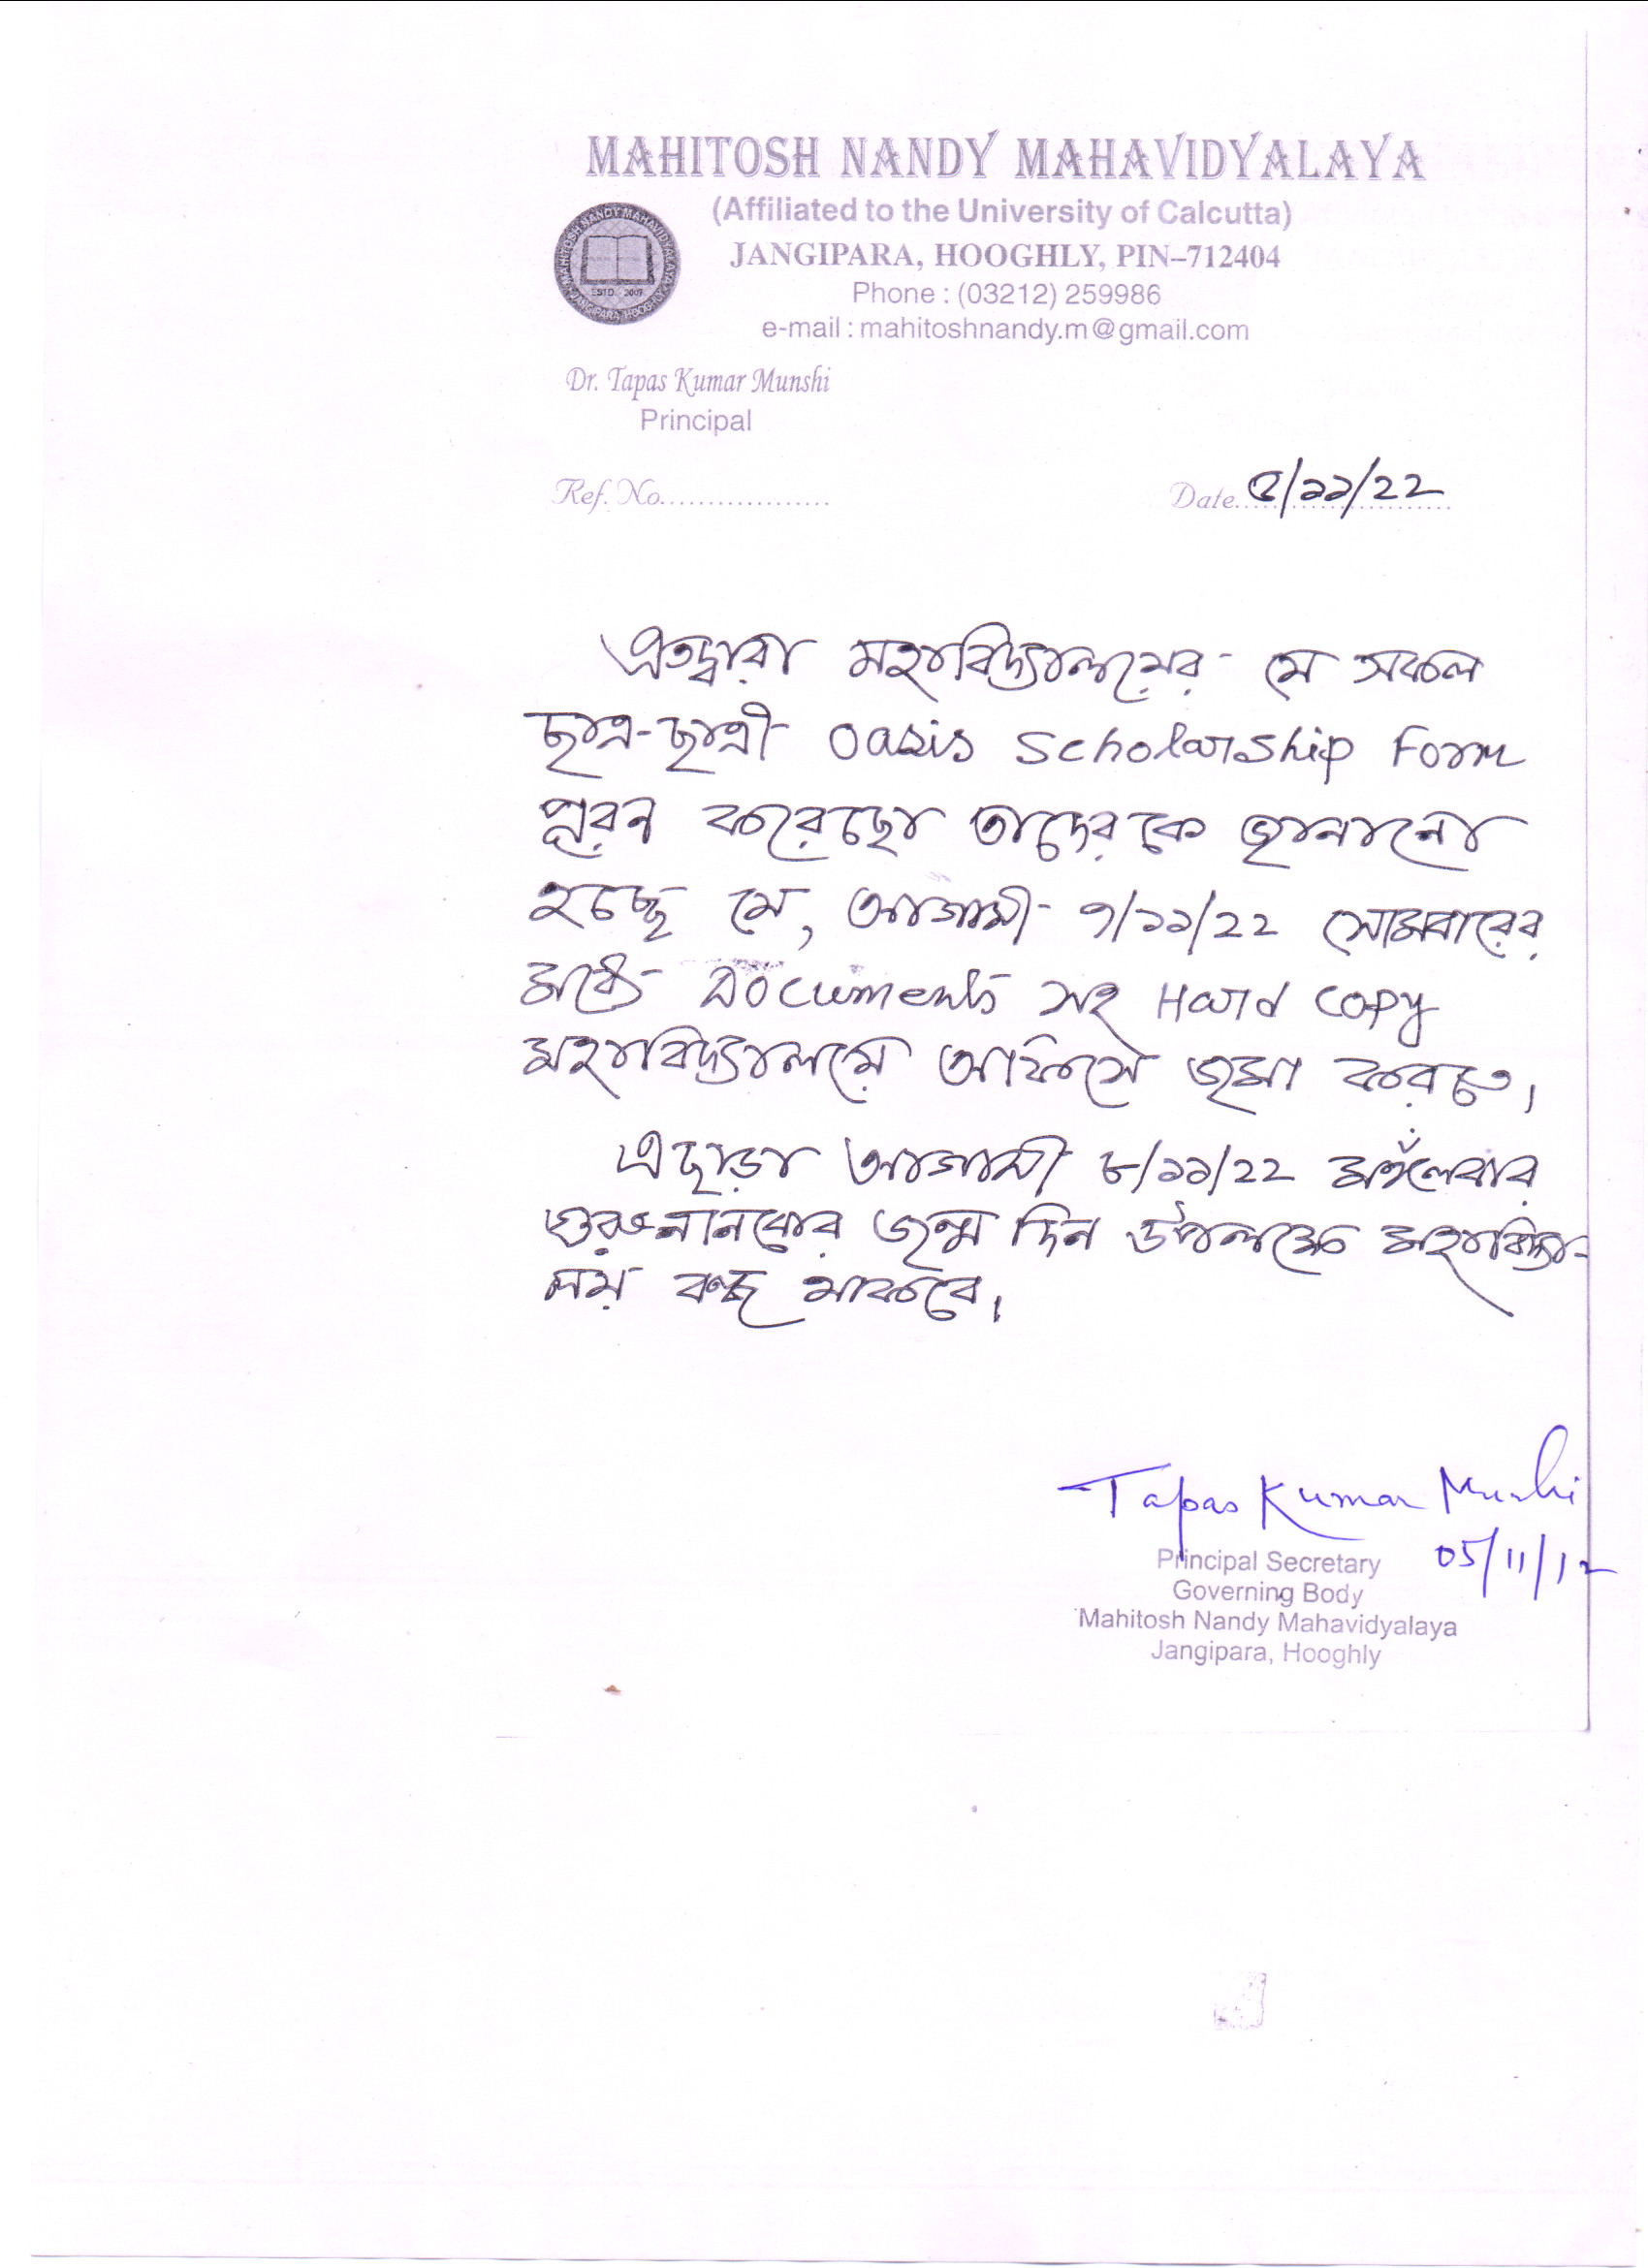 MAHITOSH NANDY MAHAVIDYALAYA
(Affiliated to the University of Calcutta)
JANGIPARA, HOOGHLY, PIN–712404
Phone : (03212) 259986
e-mail : mahitoshnandy.m@gmail.com
MAHITOSH NANDY MAHAVIDYALAYA
ESTD. - 2007
JANGIPARA, HOOGHLY
Dr. Tapas Kumar Munshi
Principal
Ref. No..................
Date. ৫/১১/২২
এতদ্বারা মহাবিদ্যালয়ের যে সকল
ছাত্র-ছাত্রী Oasis Scholarship Form
পূরন করেছো তাদেরকে জানানো
হচ্ছে যে, আগামী ৭/১১/২২ সোমবারের
মধ্যে Documents সহ Hard Copy
মহাবিদ্যালয়ে অফিসে জমা করতে।
এছাড়া আগামী ৮/১১/২২ মঙ্গঁলবার
গুরুনানকের জন্ম দিন উপলক্ষে মহাবিদ্যা-
লয় বন্ধ থাকবে।
Tapas Kumar Munshi
05/11/12
Principal Secretary
Governing Body
Mahitosh Nandy Mahavidyalaya
Jangipara, Hooghly